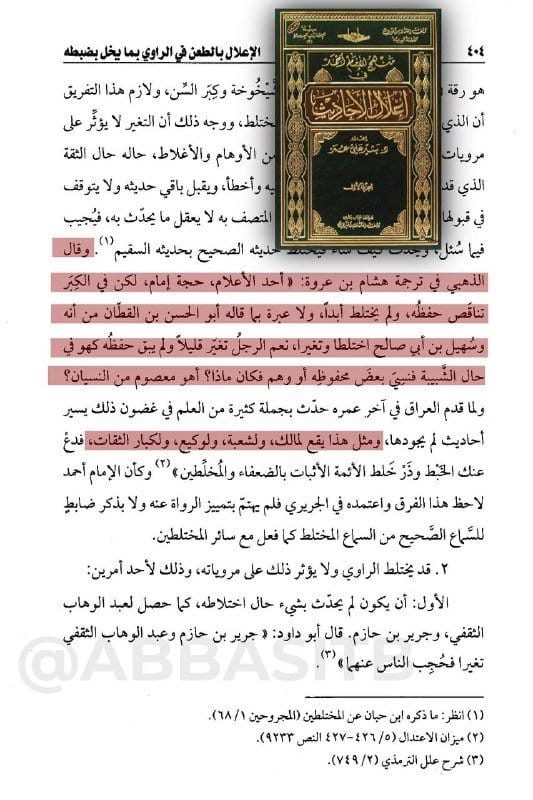 ٤٠٤
الإعلال بالطعن في الراوي بما يخل بضبطه
منهج الإمام أحمد
في
إعلال الأحاديث
د. بشير علي عمر
الجزء الأول
هو رقة
شَّيْخُوخة وكِبَر السِّن، ولازم هذا التفريق
أن الذي
ختلط، ووجه ذلك أن التغير لا يؤثِّر على
مرويات
من الأوهام والأغلاط، حاله حال الثقة
الذي قد
يه وأخطأ، ويقبل باقي حديثه ولا يتوقف
في قبولها
المتصف به لا يعقل ما يحدّث به، فيُجيب
فيما سُئل، ويحدث كيف شاء فيختلط حديثه الصحيح بحديثه السقيم»(١). وقال
الذهبي في ترجمة هشام بن عروة: «أحد الأعلام، حجة إمام، لكن في الكِبَر
تناقَص حفظُه، ولم يختلط أبداً، ولا عبرة بما قاله أبو الحسن بن القطّان من أنه
وسُهيل بن أبي صالح اختلطا وتغيرا، نعم الرجلُ تغيّر قليلاً ولم يبق حفظُه كهو في
حال الشَّبيبة فنسِيَ بعضَ محفوظِه أو وهم فكان ماذا؟ أهو معصوم من النسيان؟
ولما قدم العراق في آخر عمره حدّث بجملة كثيرة من العلم في غضون ذلك يسير
أحاديث لم يجودها، ومثل هذا يقع لمالك، ولشعبة، ولوكيع، ولكبار الثقات، فدعْ
عنك الخَبْط وذَرْ خَلط الأئمة الأثبات بالضعفاء والمُخلِّطين»(٢) وكأن الإمام أحمد
لاحظ هذا الفرق واعتمده في الجريري فلم يهتمّ بتمييز الرواة عنه ولا بذكر ضابطٍ
للسَّماع الصَّحيح من السماع المختلط كما فعل مع سائر المختلطين.
٢. قد يختلط الراوي ولا يؤثر ذلك على مروياته، وذلك لأحد أمرين:
الأول: أن يكون لم يحدّث بشيء حال اختلاطه، كما حصل لعبد الوهاب
الثقفي، وجرير بن حازم. قال أبو داود: «جرير بن حازم وعبد الوهاب الثقفي
تغيرا فحُجِب الناس عنهما»(٣).
@ABBASITB
(١) انظر: ما ذكره ابن حبان عن المختلطين (المجروحين ١/ ٦٨).
(٢) ميزان الاعتدال (٥/ ٤٢٦-٤٢٧ النص ٩٢٣٣).
(٣) شرح علل الترمذي (٢/ ٧٤٩).